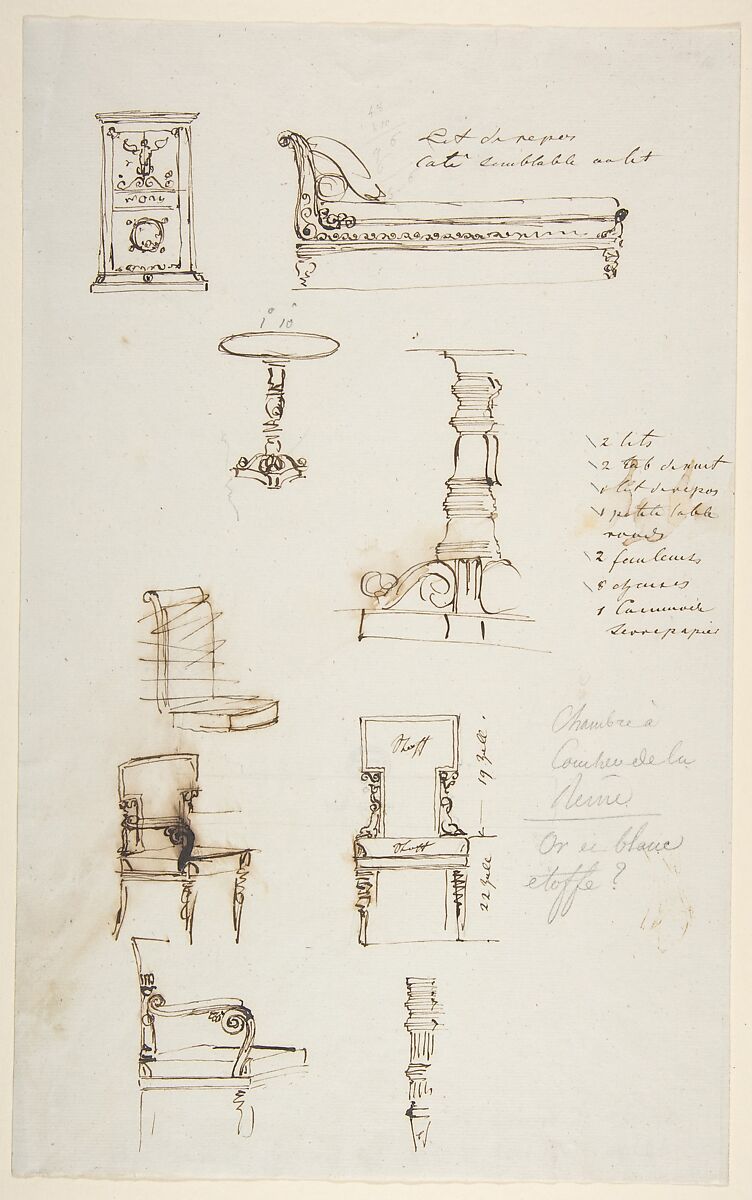 Lit de repos
Coté semblable au lit
1° 10"
\ 2 lits
\ 2 tab de nuit
\ 1 lit de repos
\ 1 petite table
ronde
\ 2 fauteuils
\ 8 chaises
1 Commode
serrepapier
Stoff
19 Zoll
Stoff
22 Zoll
Chambre à
Coucher de la
Reine
Or et blanc
etoffe ?